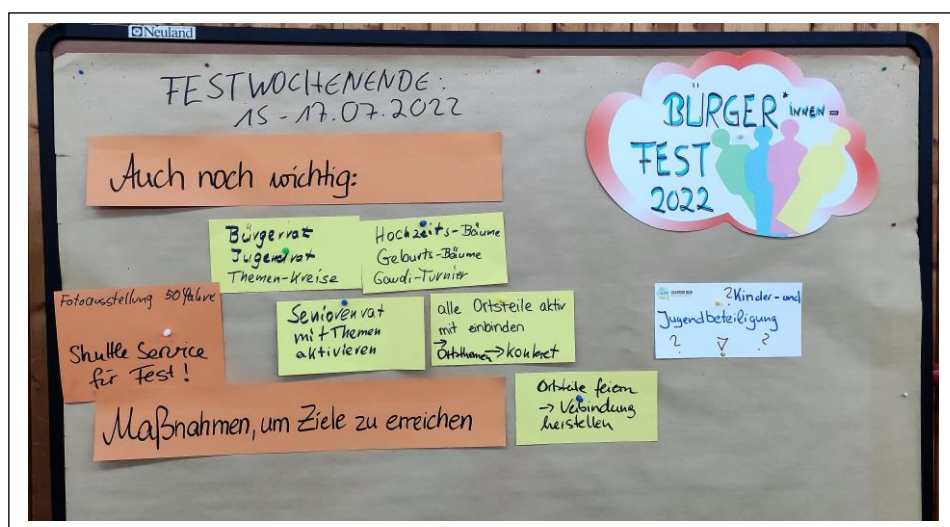 Neuland
FESTWOCHENENDE:
15-17.07.2022
BÜRGER*INNEN-
FEST
2022
Auch noch wichtig:
Bürgerrat
Jugendrat
Themen-Kreise
Hochzeits-Bäume
Geburts-Bäume
Gaudi-Turnier
Fotoausstellung 50 Jahre
Shuttle Service
für Fest!
Seniorenrat
mit Themen
aktivieren
alle Ortsteile aktiv
mit einbinden
→
Ortsthemen → konkret
? Kinder- und
Jugendbeteiligung
? ! ?
Maßnahmen, um Ziele zu erreichen
Ortsteile feiern
→ Verbindung
herstellen